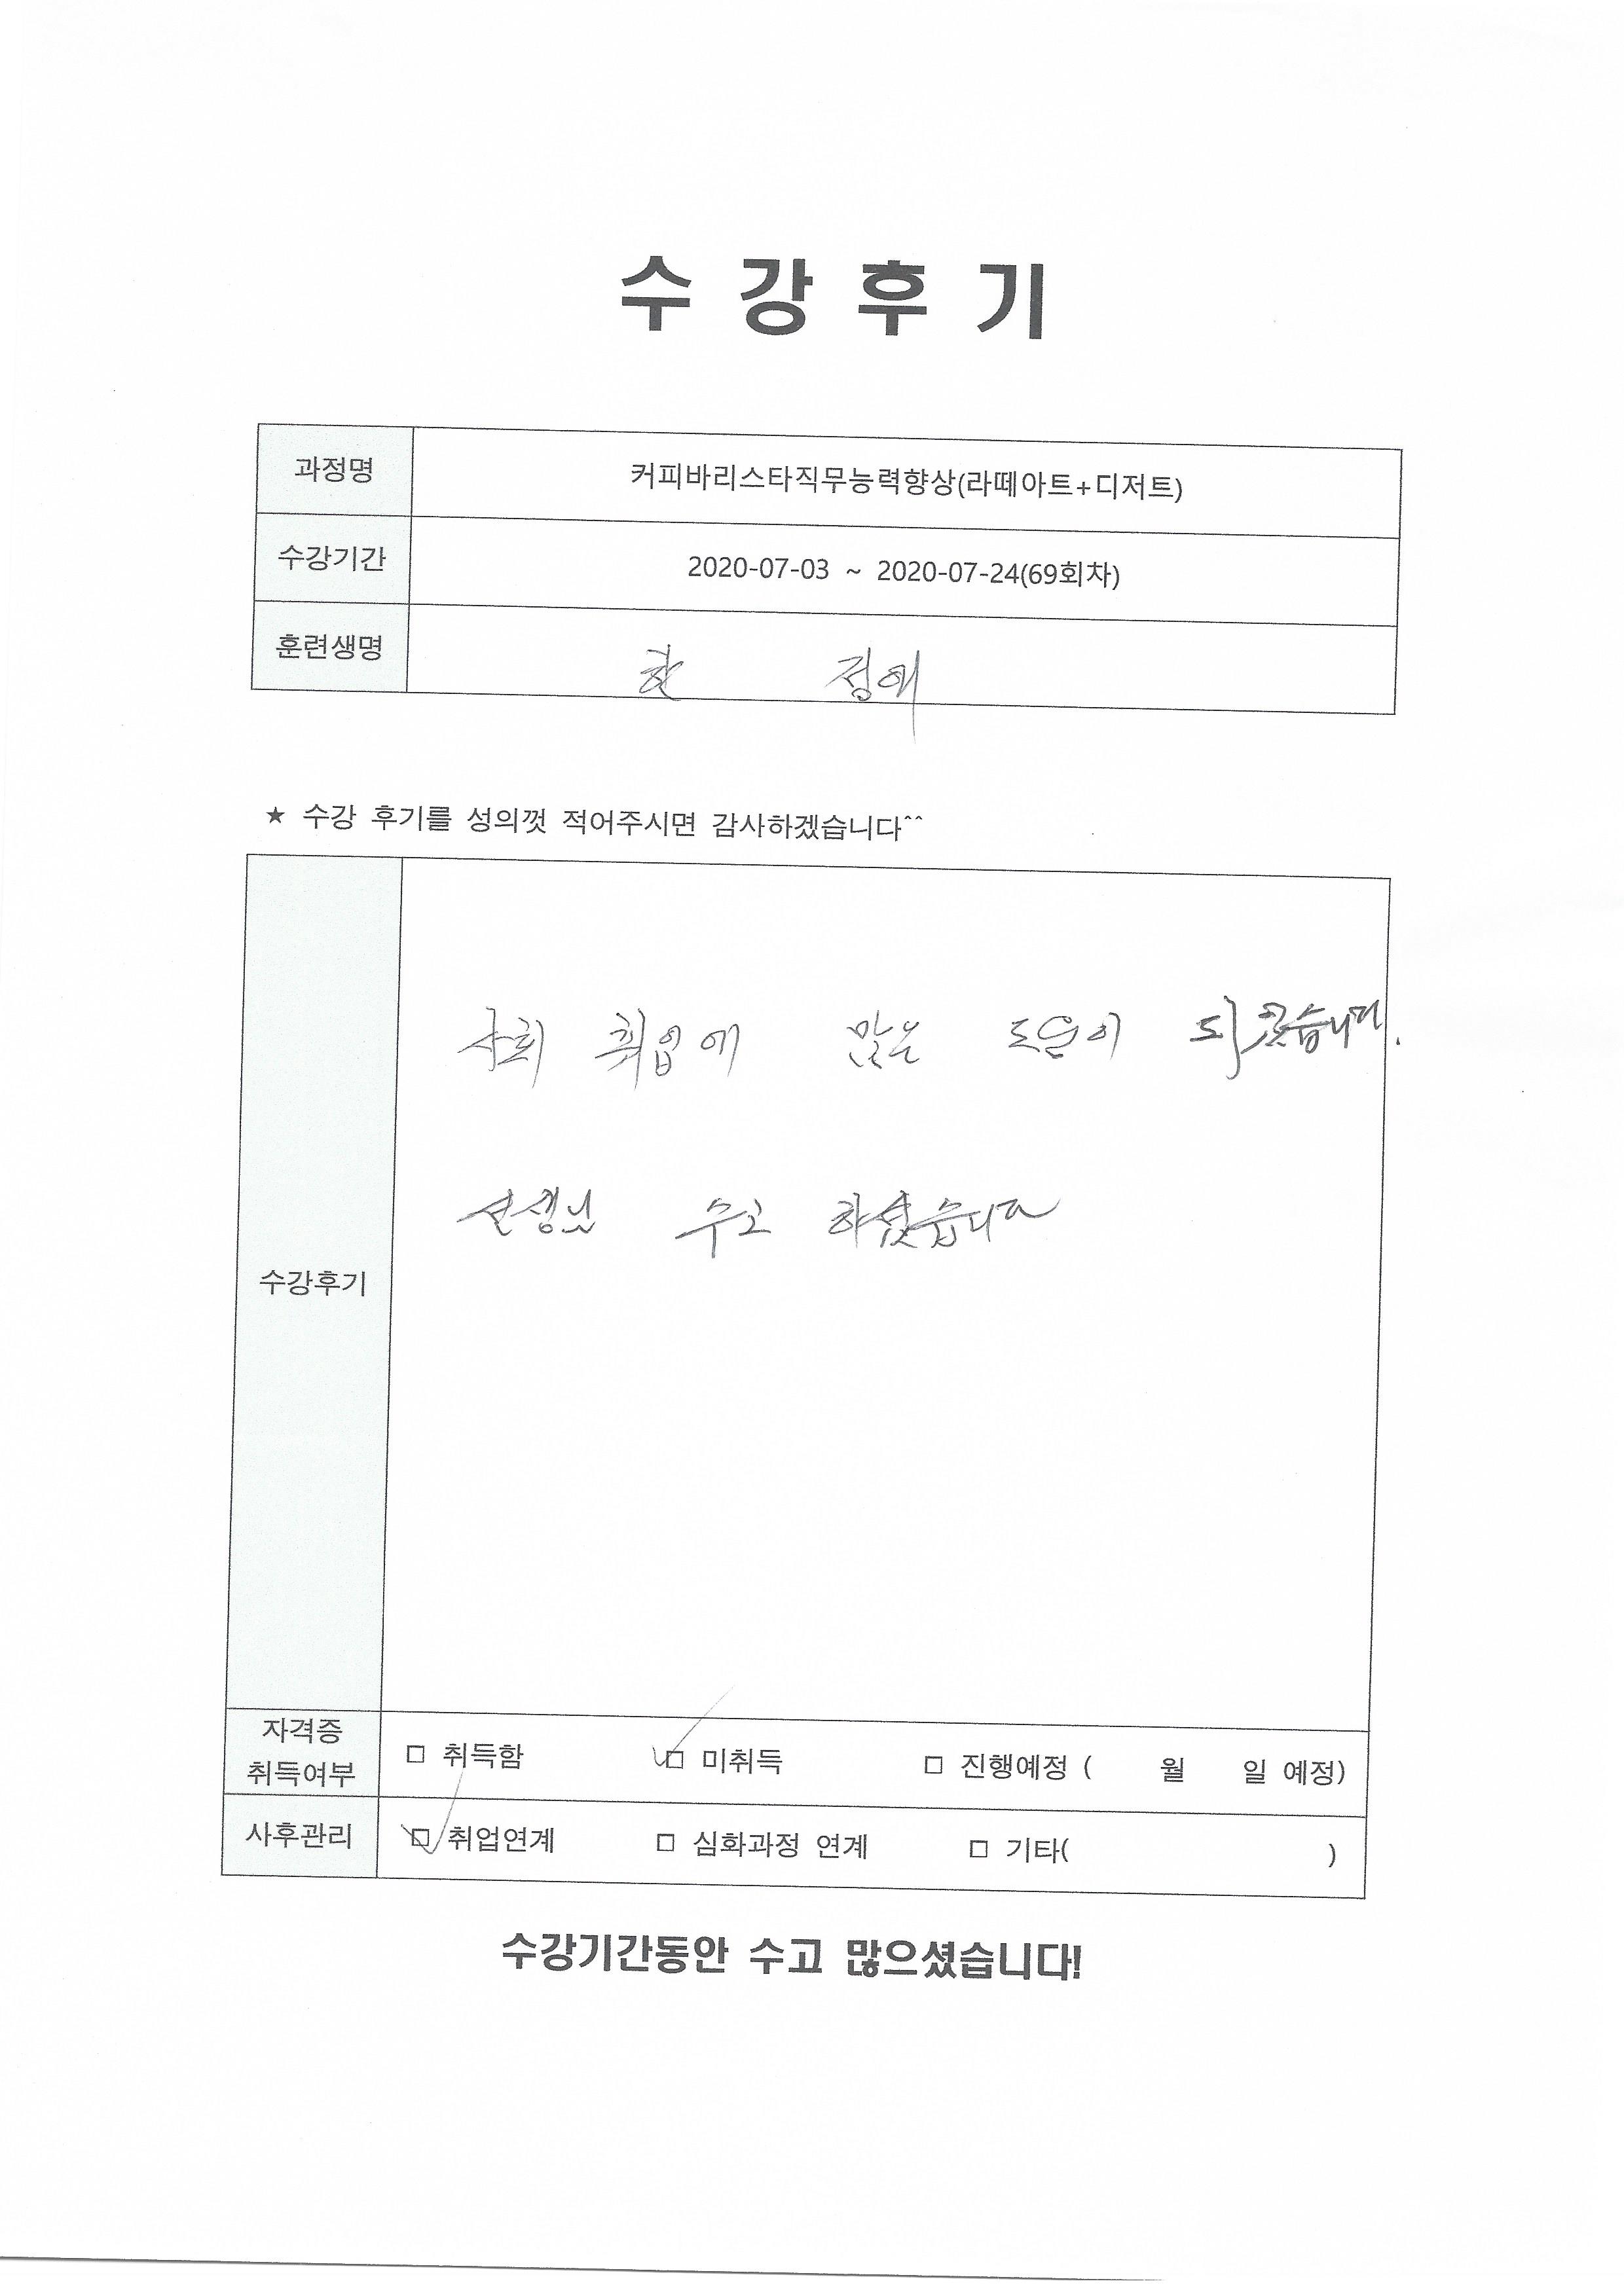 수 강 후 기
과정명 커피바리스타직무능력향상(라떼아트+디저트)
수강기간 2020-07-03 ~ 2020-07-24(69회차)
훈련생명 한 정애
★ 수강 후기를 성의껏 적어주시면 감사하겠습니다^^
사회 취업에 많은 도움이 되겠습니다.
선생님 수고 하셨습니다
수강후기
자격증 취득여부 □ 취득함 □ 미취득 □ 진행예정 ( 월 일 예정)
사후관리 □ 취업연계 □ 심화과정 연계 □ 기타( )
수강기간동안 수고 많으셨습니다!